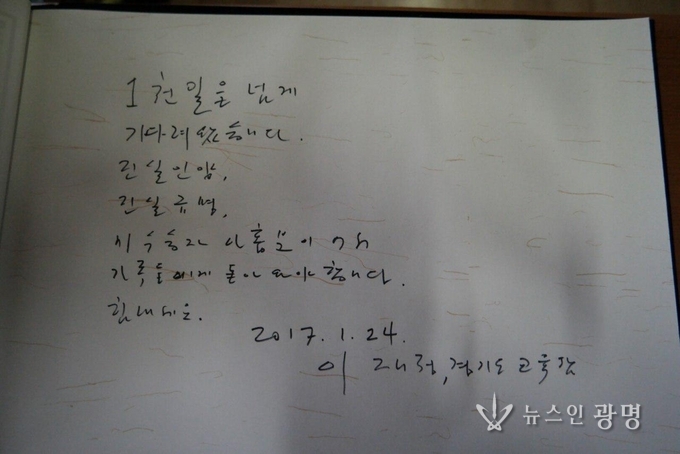 1천일을 넘게
기다려 왔습니다.
진실인양,
진실규명,
미수습자 아홉분이
가족들에게 돌아와야 합니다.
힘내세요.
2017. 1. 24.
이재정, 경기도교육감
뉴스인 광명